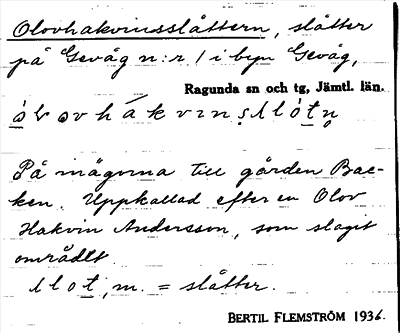 Olovhakvinsslåttern, slåtter
på Gevåg n:r 1 i byn Gevåg,
Ragunda sn och tg, Jämtl. län.
På mägorna till gården Bac-
ken. Uppkallad efter en Olov
Hakvin Andersson, som slagit
området.
slot, m. = slåtter.
BERTIL FLEMSTRÖM 1936.